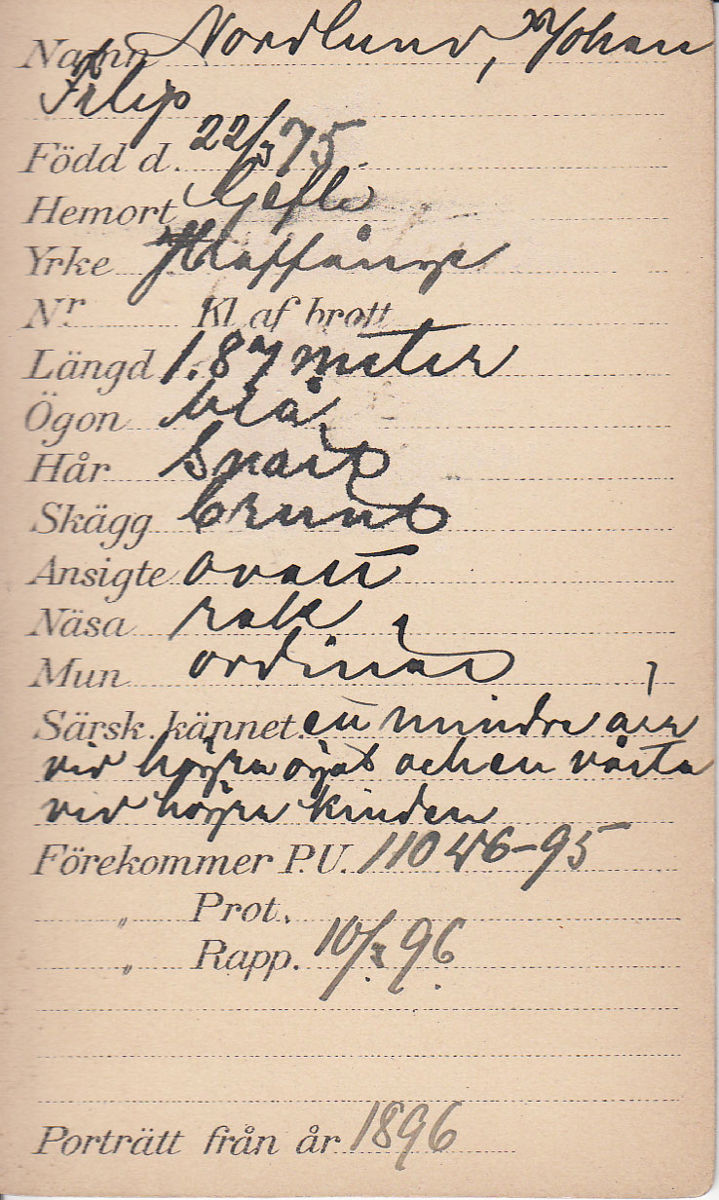 Namn Nordlund, Johan
Filip
Född d. 22/3 75
Hemort Gefle
Yrke
Nr. Kl af brott
Längd 1.87 meter
Ögon blå
Hår svart
Skägg brunt
Ansigte ovalt
Näsa rak
Mun ordinär
Särsk. kännet. ett mindre ärr
vid högra ögat och en vårta
vid högra kinden
Förekommer P.U. 11046-95
„ Prot.
„ Rapp. 10/3 96.
Porträtt från år 1896